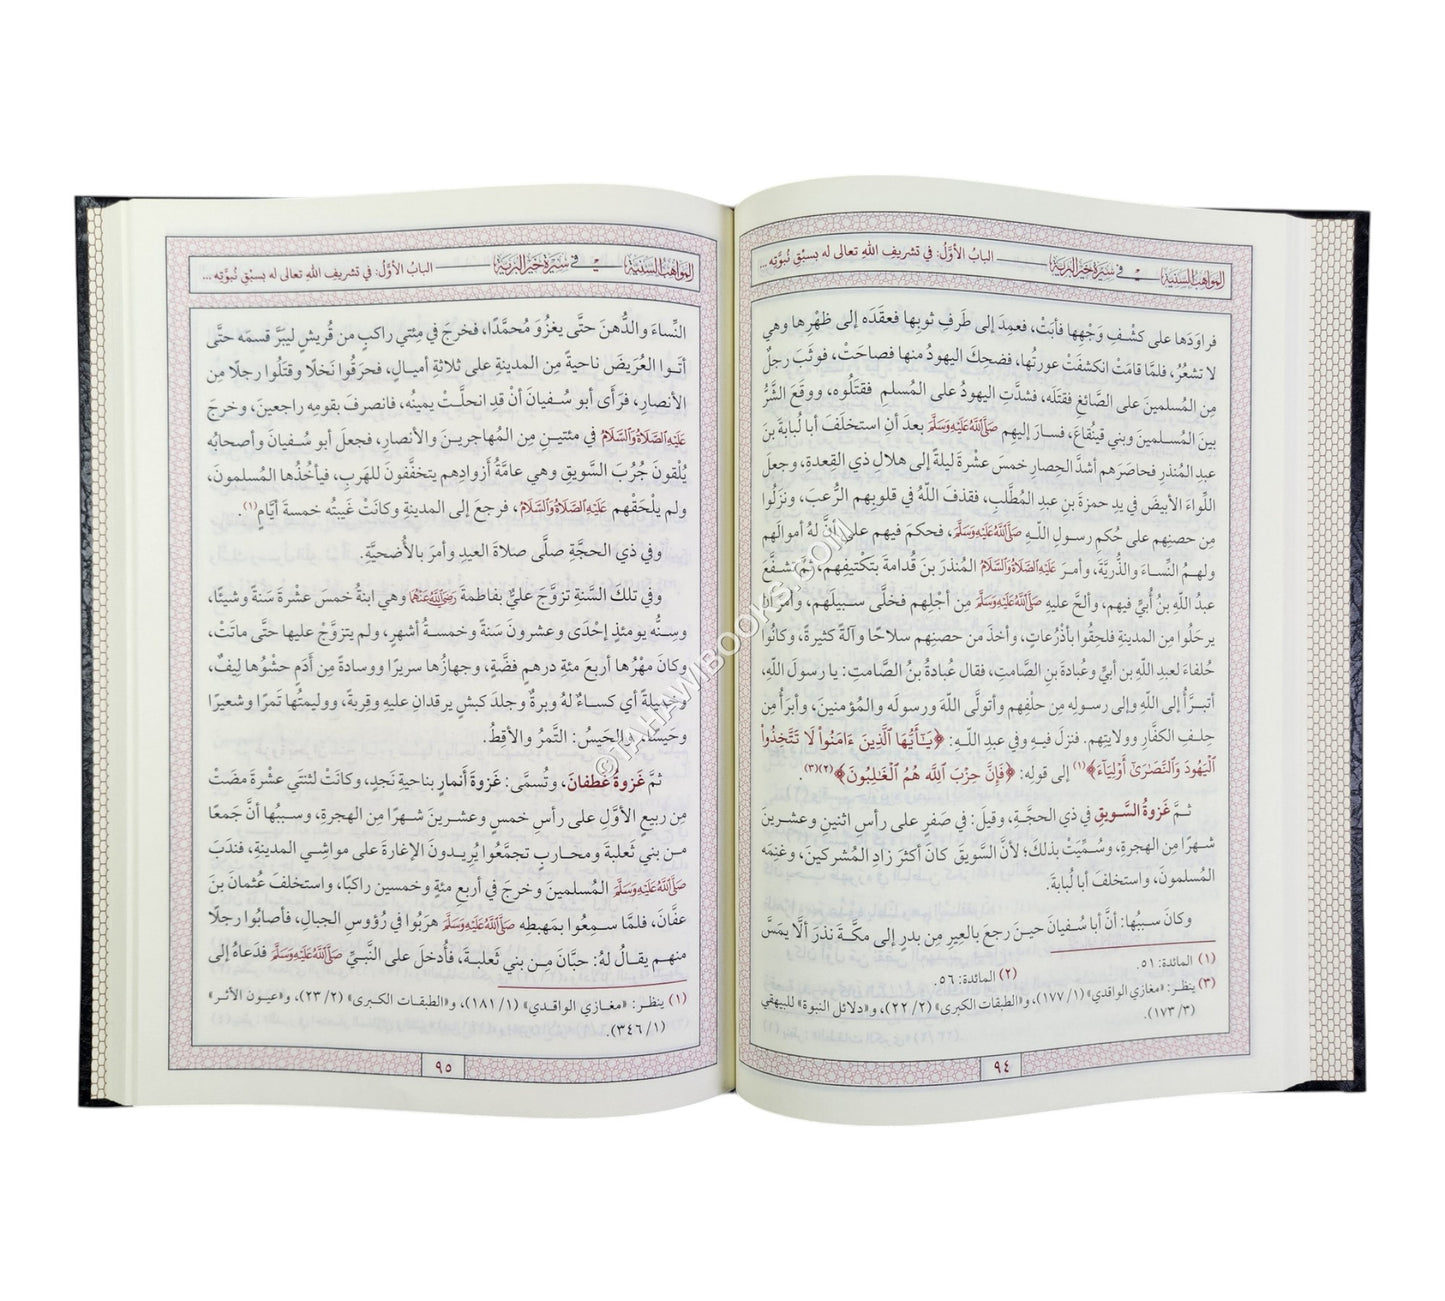 المواهب السنية في سيرة خير البرية البابُ الأوَّلُ: في تشريفِ اللهِ تعالى له بسبْقِ نُبوَّتِه ...
فراوَدَها على كشْفِ وَجْهِها فأبَتْ، فعمِدَ إلى طَرفِ ثوبِها فعقَدَه إلى ظهْرِها وهي
لا تشعُرُ، فلمَّا قامَتْ انكشفَتْ عورتُها، فضحِكَ اليهودُ منها فصاحَتْ، فوثَبَ رجلٌ
مِن المُسلمينَ على الصَّائغِ فقتَلَه، فشدَّتِ اليهودُ على المُسلمِ فقتَلُوه، ووقَعَ الشَّرُّ
بينَ المُسلمينَ وبني قينُقاعَ، فسارَ إليهم صَلَّى اللَّهُ عَلَيْهِ وَسَلَّمَ بعدَ أنِ استخلَفَ أبا لُبابةَ بنَ
عبدِ المُنذرِ فحاصَرَهم أشدَّ الحِصارِ خمسَ عشْرةَ ليلةً إلى هلالِ ذي القِعدةِ، وجعلَ
اللِّواءَ الأبيضَ في يدِ حمزةَ بنِ عبدِ المُطَّلبِ، فقذفَ اللهُ في قلوبِهم الرُّعبَ، ونزَلُوا
مِن حصنِهم على حُكمِ رسولِ اللهِ صَلَّى اللَّهُ عَلَيْهِ وَسَلَّمَ، فحكمَ فيهم على أنَّ لهُ أموالَهم
ولهمُ النِّساءَ والذُّريَّةَ، وأمرَ عَلَيْهِ الصَّلَاةُ وَالسَّلَامُ المُنذرَ بنَ قُدامةَ بتكْتيفِهم، ثمَّ شفَّعَ
عبدُ اللهِ بنُ أُبيٍّ فيهم، وألحَّ عليهِ صَلَّى اللَّهُ عَلَيْهِ وَسَلَّمَ مِن أجْلِهم فخلَّى سبيلَهم، وأمرَ أنْ
يرحَلُوا مِن المدينةِ فلحِقُوا بأذْرُعاتٍ، وأخذَ من حصنِهم سلاحًا وآلةً كثيرةً، وكانُوا
حُلفاءَ لعبدِ اللهِ بن أبيٍّ وعُبادةَ بنِ الصَّامتِ، فقال عُبادةُ بنُ الصَّامتِ: يا رسولَ اللهِ،
أتبرَّأُ إلى اللهِ وإلى رسولِه مِن حلْفِهم وأتولَّى اللهَ ورسولَه والمُؤمنينَ، وأبرَأُ مِن
حِلفِ الكفَّارِ وولايتِهم. فنزلَ فيهِ وفي عبدِ اللهِ: ﴿يَٰٓأَيُّهَا ٱلَّذِينَ ءَامَنُوا۟ لَا تَتَّخِذُوا۟
ٱلْيَهُودَ وَٱلنَّصَٰرَىٰٓ أَوْلِيَآءَ﴾(١) إلى قولِه: ﴿فَإِنَّ حِزْبَ ٱللَّهِ هُمُ ٱلْغَٰلِبُونَ﴾(٢)(٣).
ثمَّ غَزوةُ السَّويقِ في ذي الحجَّةِ، وقيلَ: في صَفرٍ على رأسِ اثنينِ وعشرينَ
شهرًا مِن الهجرةِ، وسُمِّيَتْ بذلكَ؛ لأنَّ السَّويقَ كانَ أكثرَ زادِ المُشركينَ، وغنِمَه
المُسلمونَ، واستخلفَ أبا لُبابةَ.
وكانَ سببُها: أنَّ أبا سُفيانَ حينَ رجعَ بالعِيرِ مِن بدرٍ إلى مكَّةَ نذرَ ألَّا يمَسَّ
(١) المائدة: ٥١. (٢) المائدة: ٥٦.
(٣) ينظر: «مغازي الواقدي» (١/ ١٧٧)، و«الطبقات الكبرى» (٢/ ٢٢)، و«دلائل النبوة» للبيهقي
(٣/ ١٧٣).
٩٤
المواهب السنية في سيرة خير البرية البابُ الأوَّلُ: في تشريفِ اللهِ تعالى له بسبْقِ نُبوَّتِه ...
النِّساءَ والدُّهنَ حتَّى يغزُوَ مُحمَّدًا، فخرجَ في مِئتي راكبٍ من قُريشٍ ليبَرَّ قسمَه حتَّى
أتَوا العُرَيضَ ناحيةً مِن المدينةِ على ثلاثةِ أميالٍ، فحرَقُوا نَخلًا وقتَلُوا رجلًا مِن
الأنصارِ، فرَأى أبو سُفيانَ أنْ قدِ انحلَّتْ يمينُه، فانصرفَ بقومِه راجعينَ، وخرجَ
عَلَيْهِ الصَّلَاةُ وَالسَّلَامُ في مئتينِ مِن المُهاجرينَ والأنصارِ، فجعلَ أبو سُفيانَ وأصحابُه
يُلْقونَ جُرُبَ السَّويقِ وهي عامَّةُ أزوادِهم يتخفَّفونَ للهَربِ، فيأخُذُها المُسلمونَ،
ولم يلْحَقْهم عَلَيْهِ الصَّلَاةُ وَالسَّلَامُ، فرجعَ إلى المدينةِ وكانَتْ غَيبتُه خمسةَ أيَّامٍ(١).
وفي ذي الحجَّةِ صلَّى صلاةَ العيدِ وأمرَ بالأُضحيَّةِ.
وفي تلكَ السَّنةِ تزوَّجَ عليٌّ بفاطمةَ رَضِيَ اللَّهُ عَنْهُمَا وهي ابنةُ خمسَ عشْرةَ سَنةً وشيئًا،
وسِنُّه يومئذٍ إحْدَى وعشرونَ سَنةً وخمسةُ أشهرٍ، ولم يتزوَّجْ عليها حتَّى ماتَتْ،
وكانَ مهْرُها أربعَ مئةِ درهمٍ فضَّةٍ، وجهازُها سريرًا ووسادةً مِن أدَمٍ حشْوُها ليفٌ،
وخميلةً أي كساءٌ لهُ وبرةٌ وجلدَ كبشٍ يرقدانِ عليهِ وقِربةً، ووليمتُها تَمرًا وشعيرًا
وحَيسًا، والحَيسُ: التَّمرُ والأقِطُ.
ثمَّ غَزوةُ غَطفانَ، وتُسمَّى: غَزوةَ أنمارٍ بناحيةِ نَجدٍ، وكانَتْ لثنتَي عشْرةَ مضَتْ
مِن ربيعِ الأوَّلِ على رأسِ خمسٍ وعشرينَ شهرًا مِن الهجرةِ، وسببُها أنَّ جَمعًا
من بني ثَعلبةَ ومحاربٍ تجمَّعُوا يُريدونَ الإغارةَ على مواشِي المدينةِ، فندَبَ
صَلَّى اللَّهُ عَلَيْهِ وَسَلَّمَ المُسلمينَ وخرجَ في أربعِ مئةٍ وخمسين راكبًا، واستخلفَ عُثمانَ بنَ
عفَّانَ، فلمَّا سمِعُوا بمَهبطِه صَلَّى اللَّهُ عَلَيْهِ وَسَلَّمَ هرَبُوا في رُؤوسِ الجبالِ، فأصابُوا رجلًا
منهم يقالُ لهُ: حبَّانَ مِن بني ثعلبةَ، فأُدخلَ على النَّبيِّ صَلَّى اللَّهُ عَلَيْهِ وَسَلَّمَ فدَعاهُ إلى
(١) ينظر: «مغازي الواقدي» (١/ ١٨١)، و«الطبقات الكبرى» (٢/ ٢٣)، و«عيون الأثر»
(١/ ٣٤٦).
٩٥
©TAHAWIBOOKS.COM